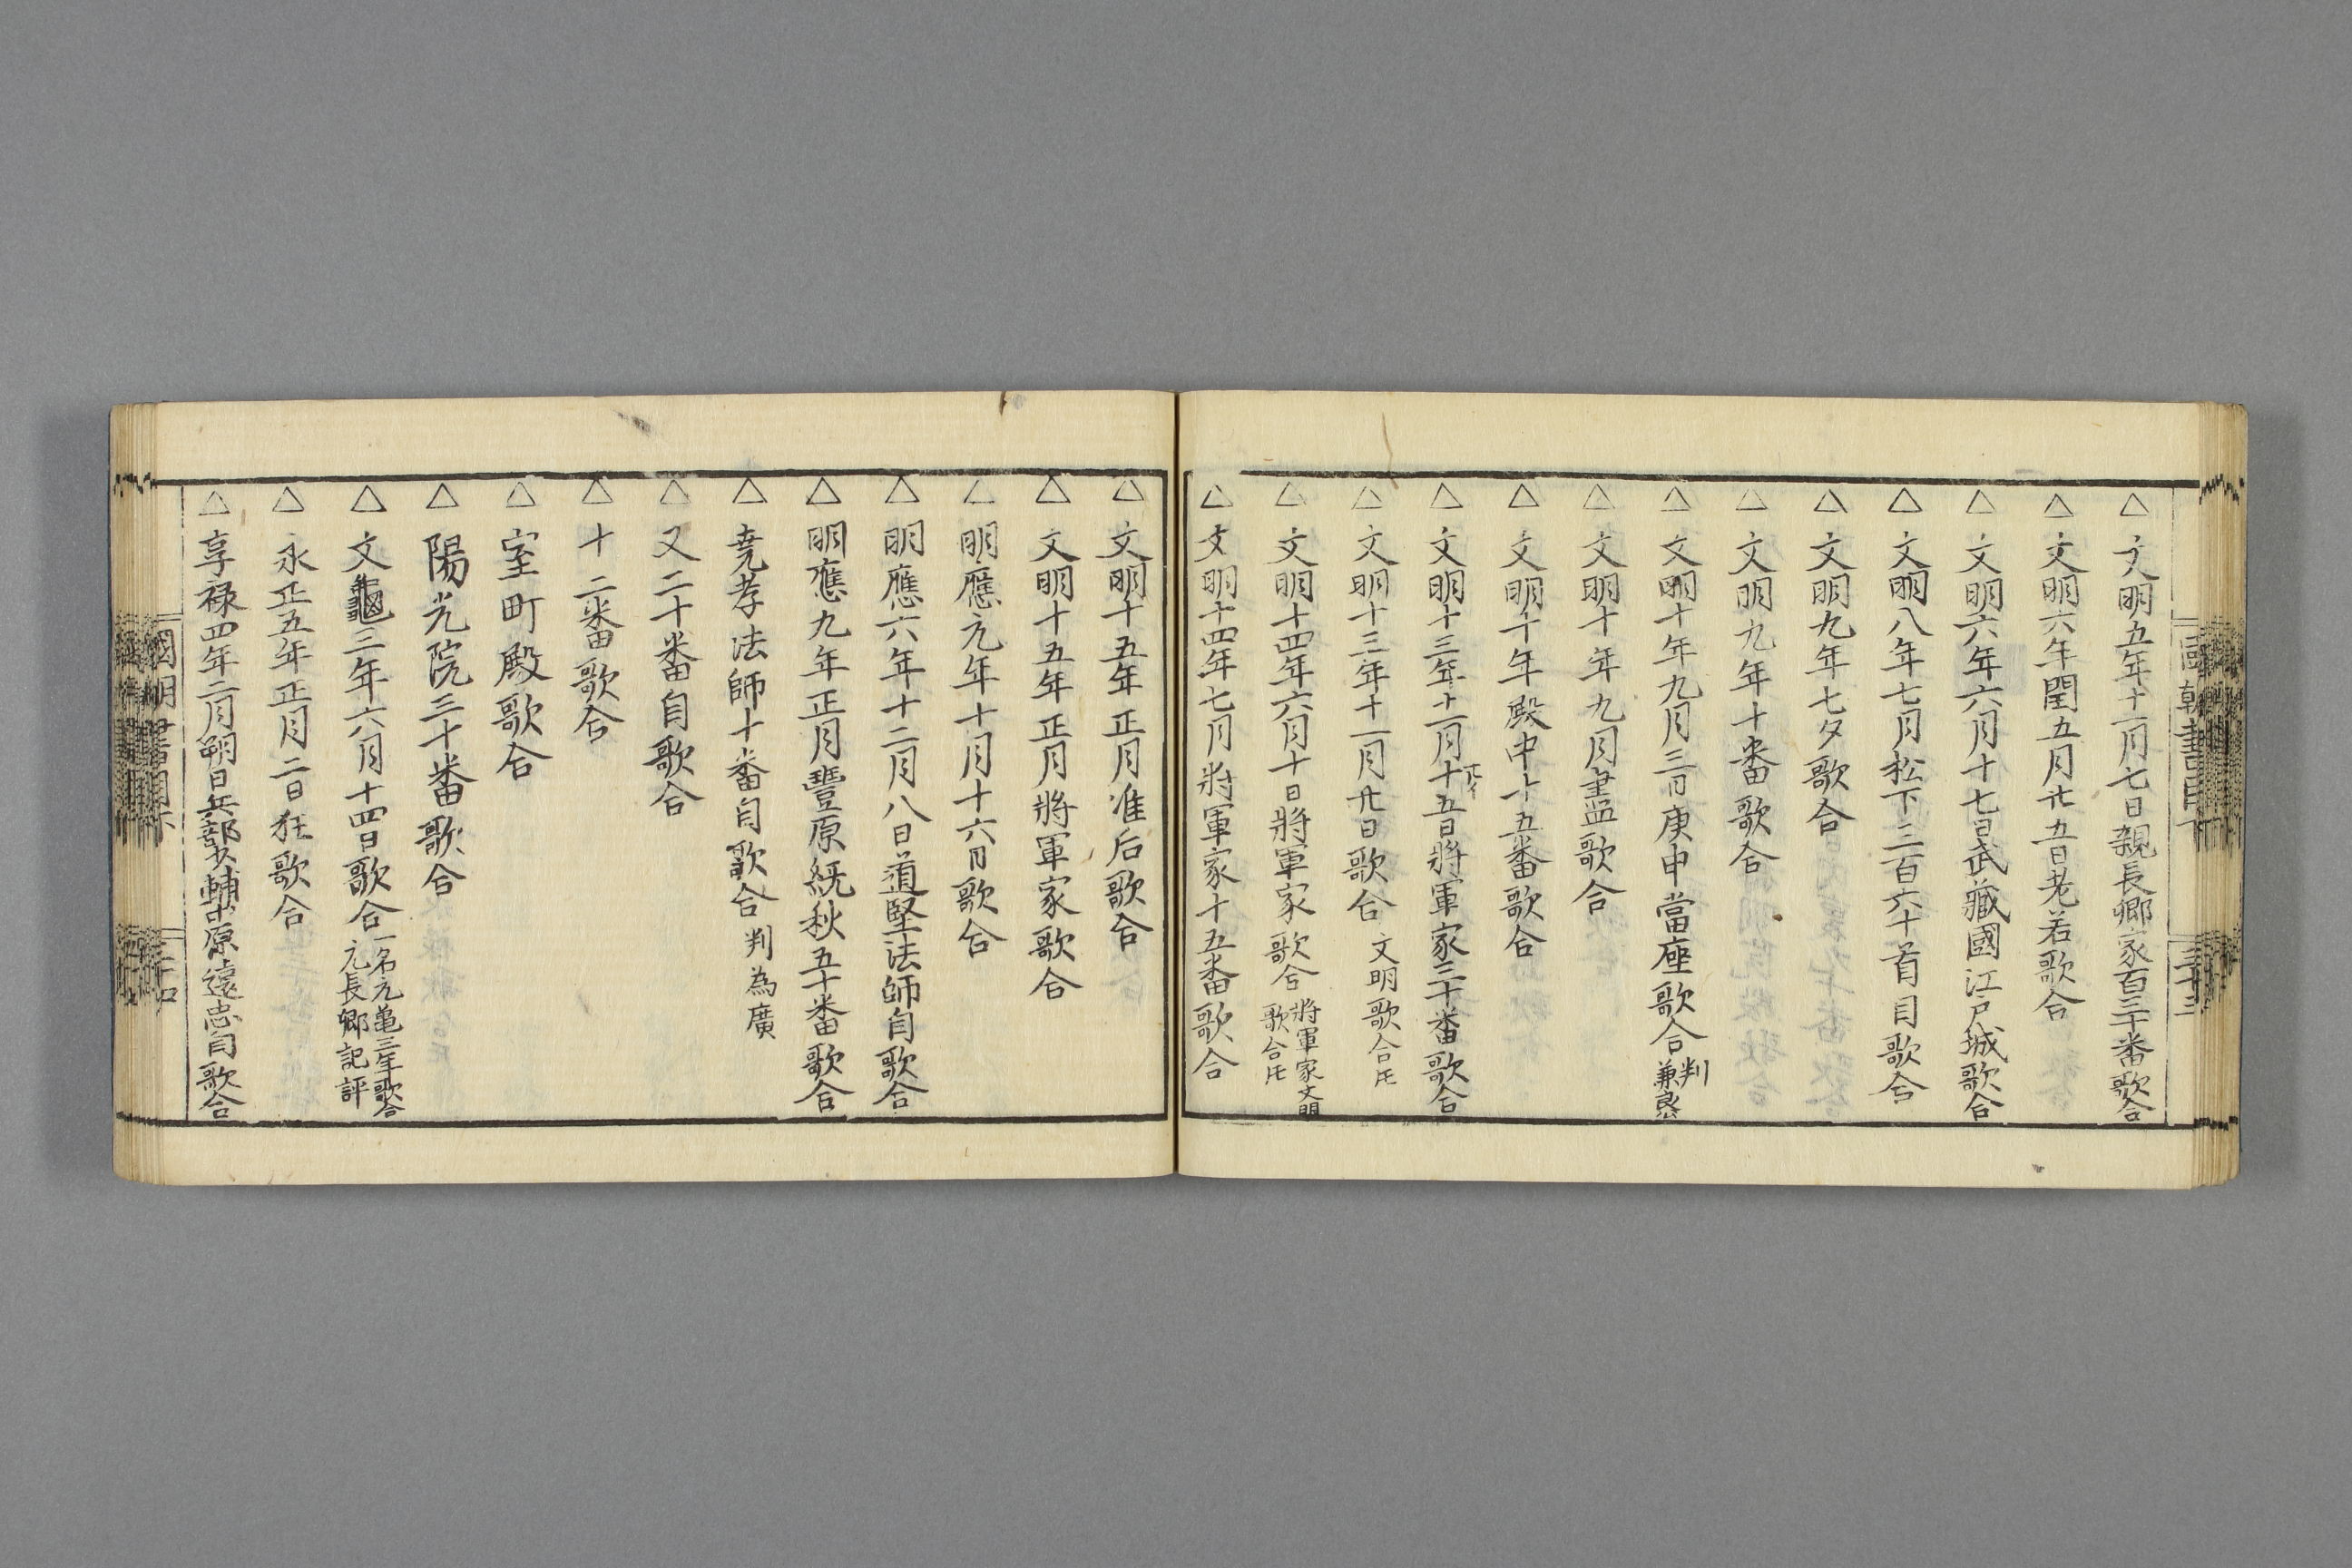 國朝書目下
三十三
△文明五年十一月七日親長卿家百三十番歌合
△文明六年閏五月廿五日老若歌合
△文明六年六月十七日武藏國江戸城歌合
△文明八年七月松下三百六十首目歌合
△文明九年七夕歌合
△文明九年十番歌合
△文明十年九月三日庚申當座歌合 判兼良
△文明十年九月盡歌合
△文明十年殿中十五番歌合
△文明十三年十一月十五日將軍家三十番歌合
△文明十三年十一月廿日歌合 文明歌合氏
△文明十四年六月十日將軍家歌合 將軍家文明歌合氏
△文明十四年七月將軍家十五番歌合
△文明十五年正月准后歌合
△文明十五年正月將軍家歌合
△明應元年十月十六日歌合
△明應六年十二月八日道堅法師自歌合
△明應九年正月豐原統秋五十番歌合
△堯孝法師十番自歌合 判為廣
△又二十番自歌合
△十二番歌合
△室町殿歌合
△陽光院三十番歌合
△文龜三年六月十四日歌合 一名元亀三年歌合元長卿記評
△永正五年正月二日狂歌合
△享禄四年二月朔日兵部少輔藤原遠忠自歌合
國朝書目下
三十四